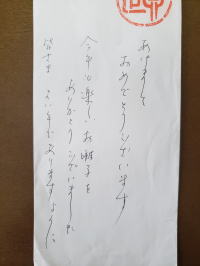 あけまして
おめでとうございます
今年も楽しいお囃子を
ありがとうございました
皆さま よい年でありますように